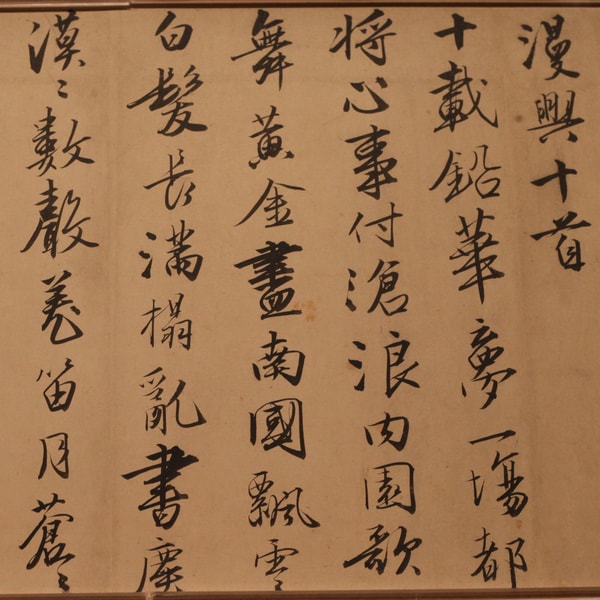 漫興十首
十載鉛華夢一場都
将心事付滄浪内園歌
舞黃金盡南國飄零
白髮長滿榻亂書塵
漠〻數聲羌笛月蒼〻